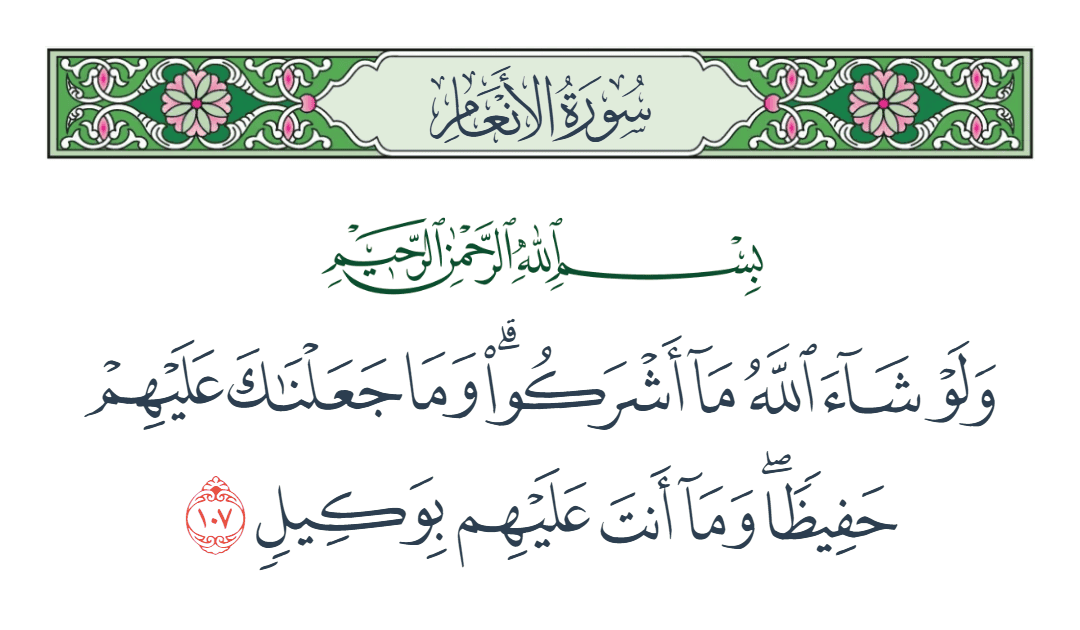 سُورَةُ الأَنْعَامِ
بِسْمِ ٱللَّهِ ٱلرَّحْمَٰنِ ٱلرَّحِيمِ
وَلَوْ شَآءَ ٱللَّهُ مَآ أَشْرَكُوا۟ ۗ وَمَا جَعَلْنَٰكَ عَلَيْهِمْ
حَفِيظًا ۖ وَمَآ أَنتَ عَلَيْهِم بِوَكِيلٍ ١٠٧